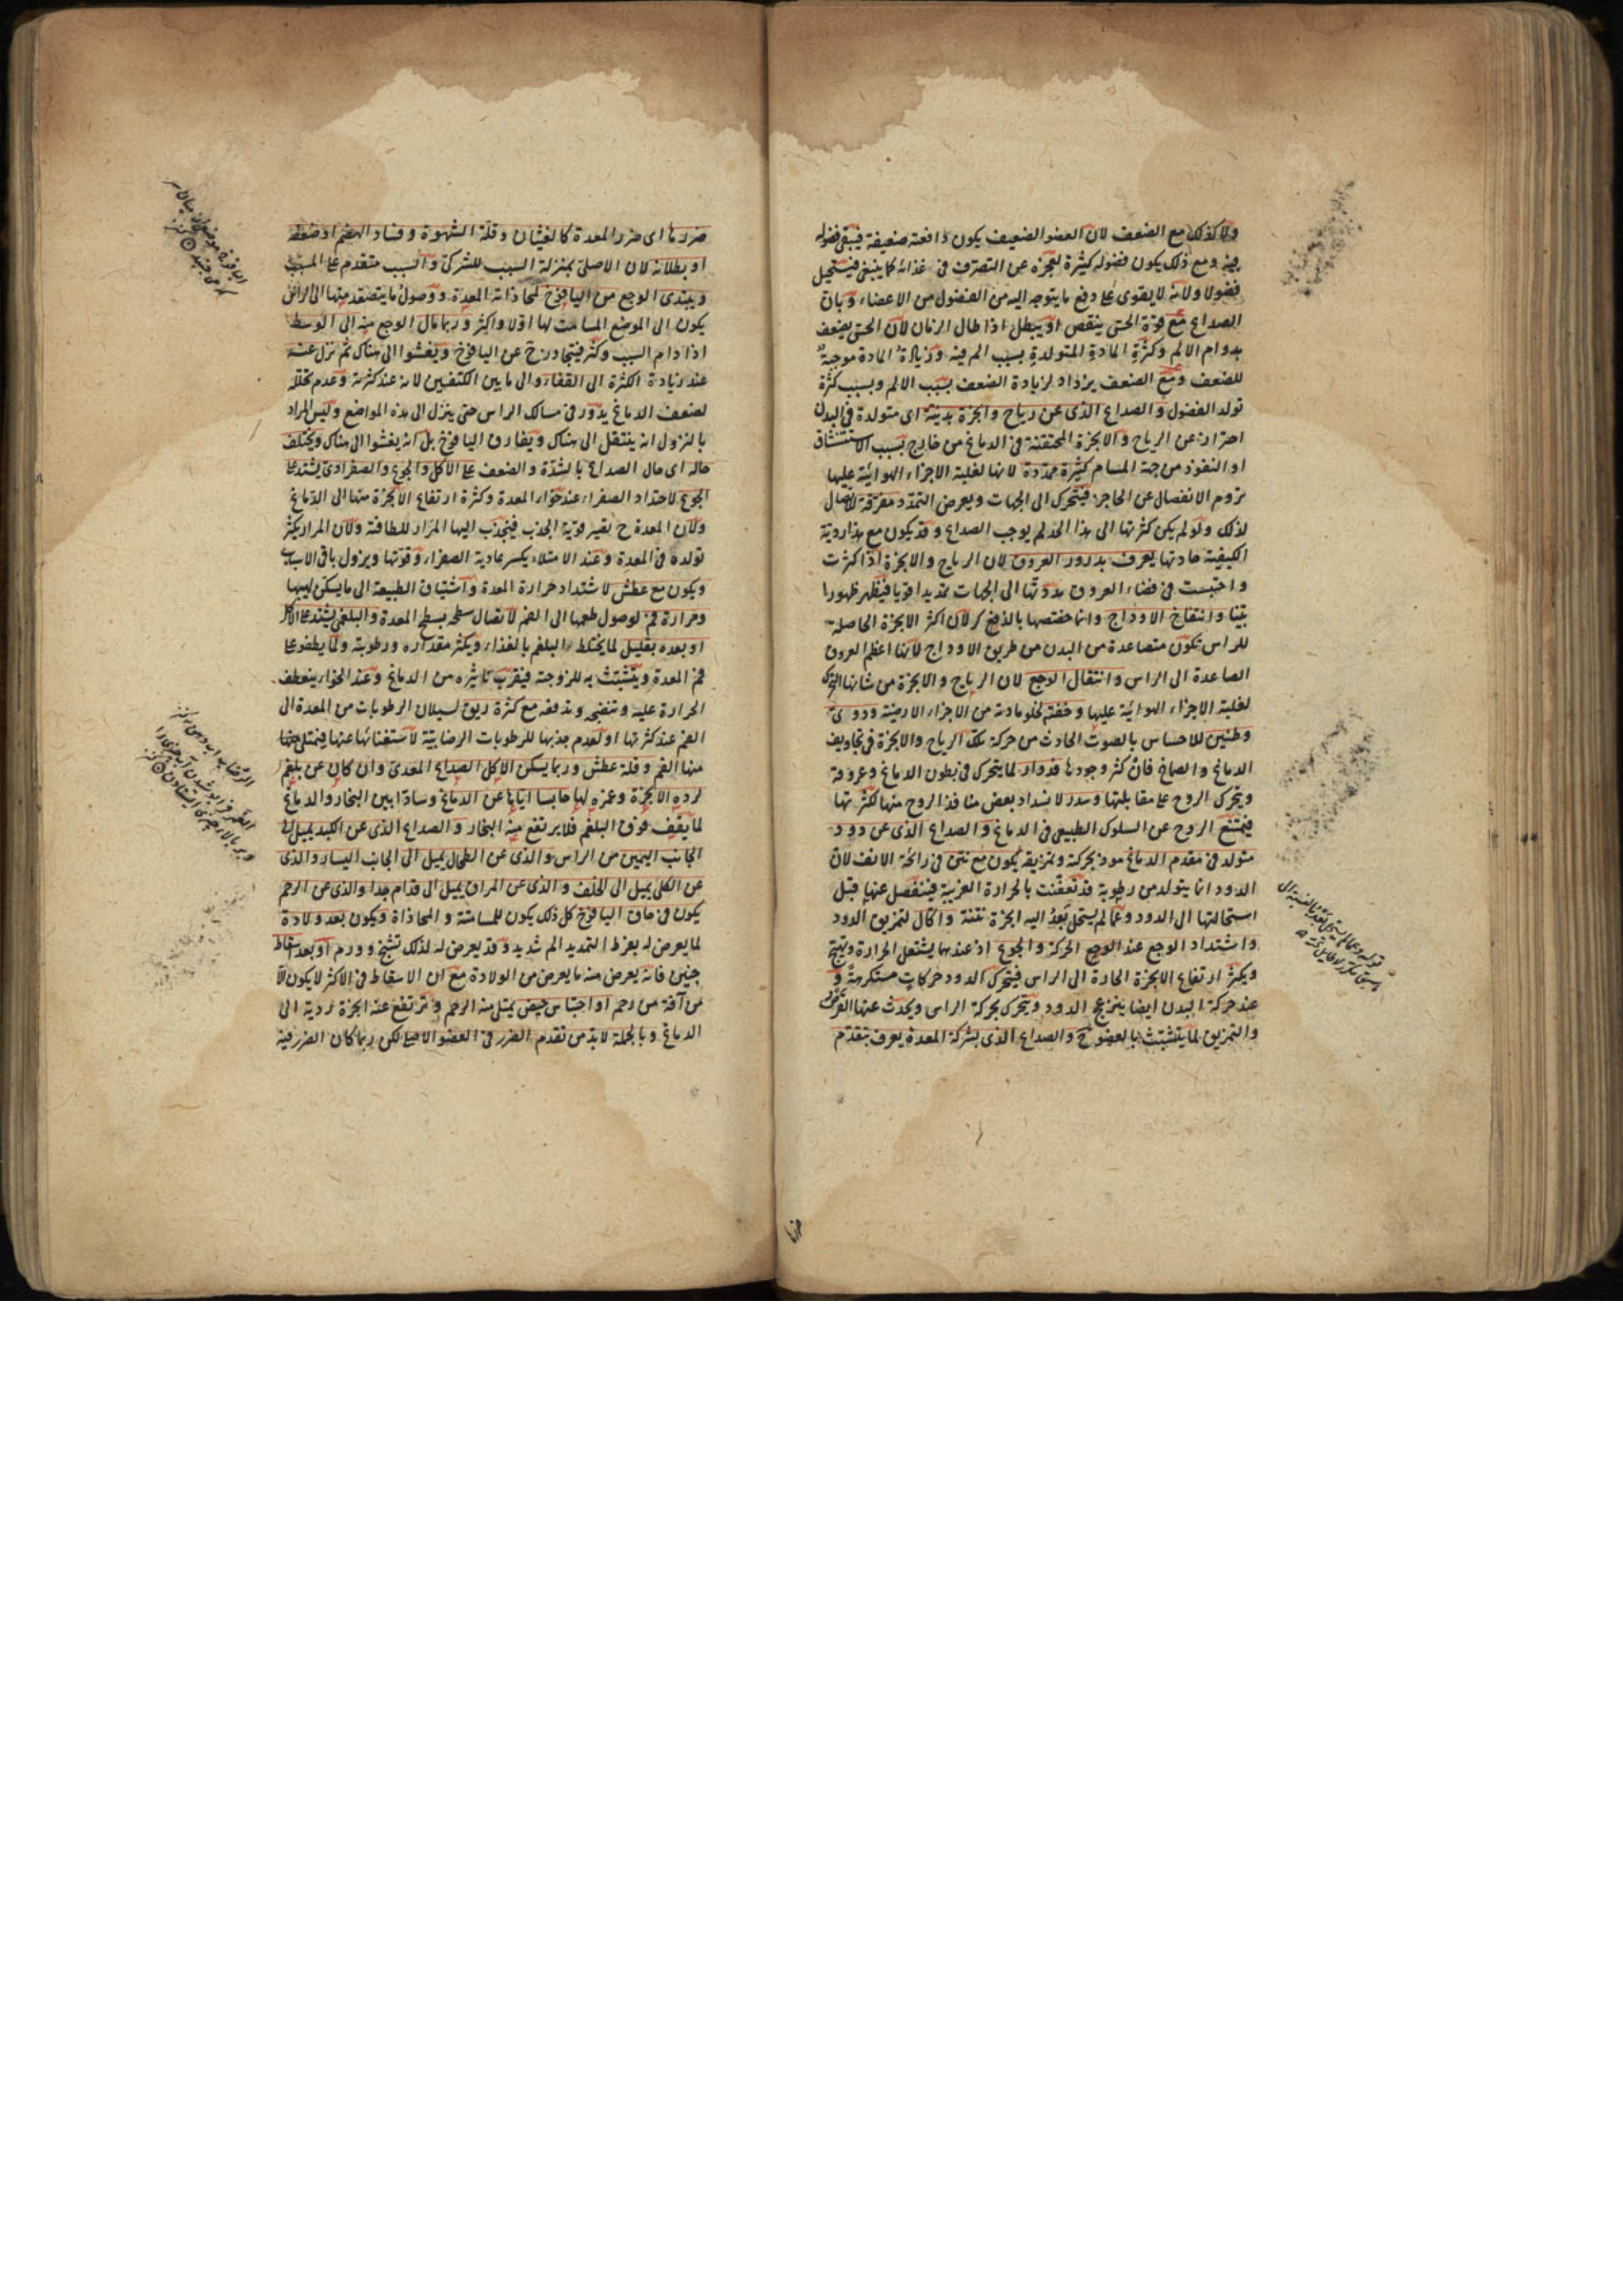 ولا كذلك مع الضعف لان العضو الضعيف يكون دافعته ضعيفة فيبقى فضوله
فيه ومع ذلك يكون فضوله كثيرة لعجزه عن التصرف فى غذائه كما ينبغى فيستحيل
فضولا ولانه لا يقوى على دفع ما يتوجه اليه من الفضول من الاعضاء وبان
الصداع مع قوة الحس ينقص او يبطل اذا طال الزمان لان الحس يضعف
بدوام الالم وكثرة المادة المتولدة بسبب الم فيه وزيادة المادة موجبة
للضعف ومع الضعف يزداد لزيادة الضعف بسبب الالم وبسبب كثرة
تولد الفضول والصداع الذى عن رياح وابخرة بدنية اى متولدة فى البدن
احتراز عن الرياح والابخرة المحتقنة فى الدماغ من خارج بسبب الاستنشاق
او النفوذ من جهة المسام كثيرة ممددة لانها لغلبة الاجزاء الهوائية عليها
تروم الانفصال عن الحاجز فيتحرك الى الجهات ويعرض التمدد مفرقة لاتصال
لذلك ولو لم يكن كثرتها الى هذا الحد لم يوجب الصداع وقد يكون مع هذا ردية
الكيفية حادتها يعرف بدرور العروق لان الرياح والابخرة اذا كثرت
واحتبست فى فضاء العروق مددتها الى الجهات تمديدا قويا فيظهر ظهورا
بينا وانتفاخ الاوداج وانما خصصها بالذكر لان اكثر الابخرة الحاصلة
للراس تكون متصاعدة من البدن من طريق الاوداج لانها اعظم العروق
الصاعدة الى الراس وانتقال الوجع لان الرياح والابخرة من شانها التحرك
لغلبة الاجزاء الهوائية عليها وخفتها لخلو مادته من الاجزاء الارضية ودوى
وطنين للاحساس بالصوت الحادث من حركة تلك الرياح والابخرة فى تجاويف
الدماغ والصماخ فان كثر وجودها فدوار لما يتحرك فى بطون الدماغ وعروقه
ويتحرك الروح على مقابلتها وسدر لانسداد بعض منافذ الروح منها لكثرتها
فيمتنع الروح عن السلوك الطبيعى فى الدماغ والصداع الذى عن دود
متولد فى مقدم الدماغ موذ بحركته وتمزيقه يكون مع نتن فى رائحة الانف لان
الدود انما يتولد من رطوبة قد تعفنت بالحرارة الغريبة فينفصل عنها قبل
استحالتها الى الدود وعما لم يستحل بعد اليه ابخرة نتنة واكال لتمزيق الدود
واشتداد الوجع عند الحركة والجوع اذ عندهما يشتعل الحرارة ويهيج
ويكثر ارتفاع الابخرة الحارة الى الراس فيتحرك الدود حركات مستكرهة و
عند حركة البدن ايضا ينزعج الدود ويتحرك بحركة الراس ويحدث عنها التفرق
والتمزيق لما يتشبث بالعضو ح والصداع الذى بشركة المعدة يعرف بتقدم
ضررها اى ضرر المعدة كالغثيان وقلة الشهوة وفساد الهضم او ضعفه
او بطلانه لان الاصلى بمنزلة السبب للشركى والسبب متقدم على المسبب
ويبتدى الوجع من اليافوخ لمحاذاته المعدة ووصول ما يتصعد منها الى الراس
يكون الى الموضع المسامت لها اولا واكثر وربما مال الوجع منه الى الوسط
اذا دام السبب وكثر فيتجاوز عن اليافوخ ويفشو الى هناك ثم نزل عنه
عند زيادة الكثرة الى القفا والى ما بين الكتفين لانه عند كثرته وعدم تحلله
لضعف الدماغ يدور فى مسالك الراس حتى ينزل الى هذه المواضع وليس المراد
بالنزول انه ينتقل الى هناك ويفارق اليافوخ بل انه يفشو الى هناك ويختلف
حاله اى حال الصداع بالشدة والضعف على الاكل والجوع والصفراوى يشتد على
الجوع لاحتداد الصفراء عند خواء المعدة وكثرة ارتفاع الابخرة منها الى الدماغ
ولان المعدة ح تصير قوية الجذب فيجذب اليها المرار للطافته ولان المرار يكثر
تولده فى المعدة وعند الامتلاء يكسر عادية الصفراء وقوتها ويزول باقى الاسباب
ويكون مع عطش لاشتداد حرارة المعدة واشتياق الطبيعة الى ما يسكن لهيبها
ومرارة فم لوصول طعمها الى الفم لاتصال سطحه بسطح المعدة والبلغمى يشتد على الاكل
او بعده بقليل لما يختلط البلغم بالغذاء ويكثر مقداره ورطوبته ولما يطفو على
فم المعدة ويتشبث به للزوجته فيقرب تاثيره من الدماغ وعند الخواء ينعطف
الحرارة عليه وتنضجه وتدفعه مع كثرة ريق لسيلان الرطوبات من المعدة الى
الفم عند كثرتها او لعدم جذبها للرطوبات الرضابية لاستغنائها عنها فيمتلى
منها الفم وقلة عطش وربما يسكن الاكل الصداع المعدى وان كان عن بلغم
لرده الابخرة وغمزه لها حابسا اياها عن الدماغ وسادا بين البخار والدماغ
لما يقف فوق البلغم فلا يرتفع منه البخار والصداع الذى عن الكبد يميل الى
الجانب اليمين من الراس والذى عن الطحال يميل الى الجانب اليسار والذى
عن الكلى يميل الى الخلف والذى عن المراق يميل الى قدام جدا والذى عن الرحم
يكون فى حاق اليافوخ كل ذلك يكون للمسامتة والمحاذاة ويكون بعد ولادة
لما يعرض له بفرط التمديد الم شديد وقد يعرض له لذلك تشنج وورم او بعد اسقاط
جنين فانه يعرض منه ما يعرض من الولادة مع ان الاسقاط فى الاكثر لا يكون الا
من آفة من رحم او احتباس حيض يمتلى منه الرحم وترتفع عنه ابخرة ردية الى
الدماغ وبالجملة لابد من تقدم الضرر فى العضو الاصلى لكن ربما كان الضرر فيه